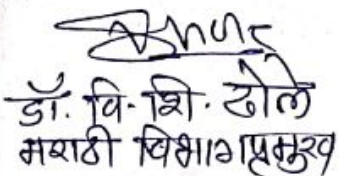 डॉ. वि. शि. ढोले
मराठी विभागप्रमुख